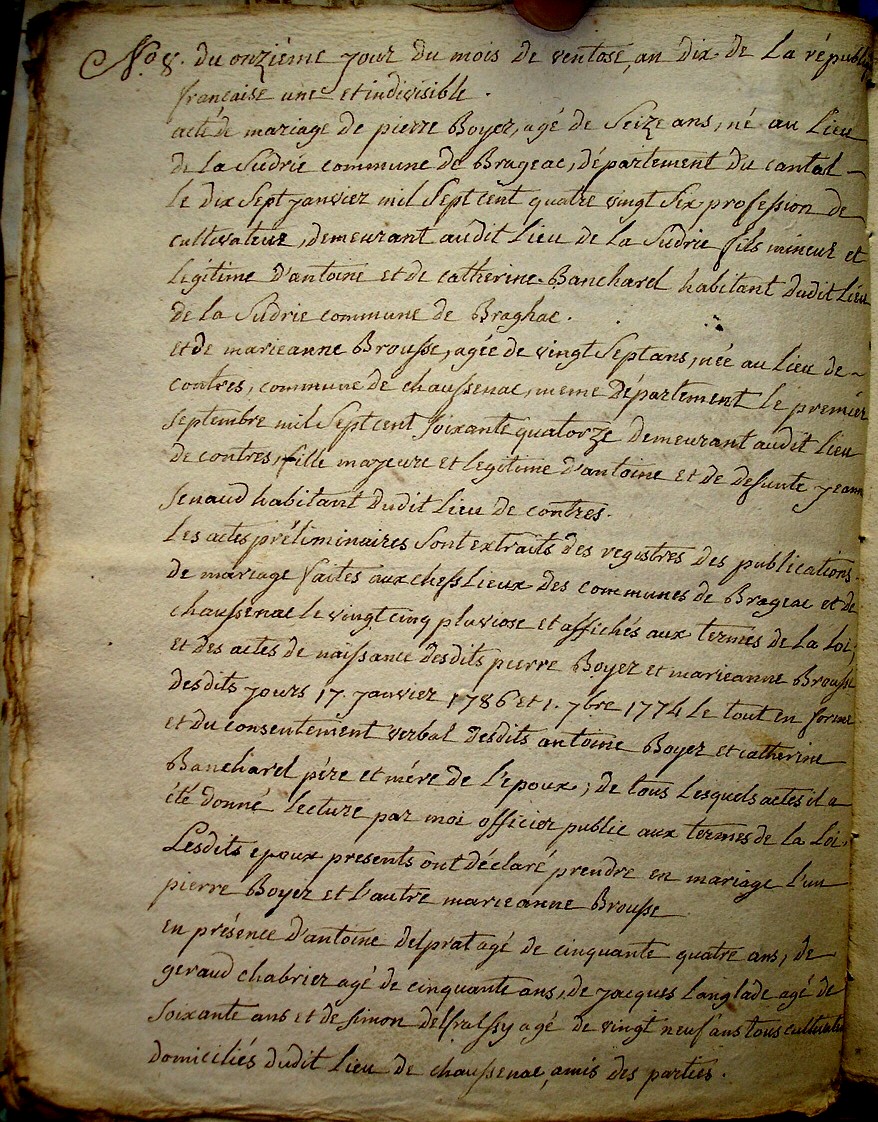 N.o 8. du onziéme jour du mois de ventose, an dix de La républ
francaise une et indivisible.
acte de mariage de pierre Boyer, agé de Seize ans, né au Lieu
de La Sudrie commune de Brageac, département du cantal
le dix Sept janvier mil Sept cent quatre vingt Six profession de
cultivateur, demeurant audit Lieu de La Sudrie fils mineur et
légitime d'antoine et de catherine Bancharel habitant dudit Lieu
de la Sudrie commune de Braghac.
et de marieanne Brousse, agée de vingt Sept ans, née au Lieu de
contres, commune de chaussenac, meme département le premier
septembre mil Sept cent soixante quatorze demeurant audit Lieu
de contres, fille majeure et legitime d'antoine et de defunte jeann
senaud habitant dudit Lieu de contres.
Les actes préliminaires Sont extraits des registres des publications
de mariage faites aux chefs Lieux des communes de Brageac et de
chaussenac le vingt cinq pluviose et affichés aux termes de La Loi,
et des actes de naissance desdits pierre Boyer et marieanne Brousse
desdits jours 17. janvier 1786 et 1. 7bre 1774 Le tout en forme
et du consentement verbal desdits antoine Boyer et catherine
Bancharel pére et mére de l'epoux; de tous Lesquels actes il a
été donné lecture par moi officier public aux termes de la Loi.
Lesdits epoux presents ont déclaré prendre en mariage l'un
pierre Boyer et L'autre marieanne Brousse
en présence d'antoine delprat agé de cinquante quatre ans, de
geraud chabrier agé de cinquante ans, de jacques Langlade agé de
soixante ans et de simon delfalssy agé de vingt neuf ans tous cultivate
domiciliés dudit Lieu de chaussenac, amis des parties.